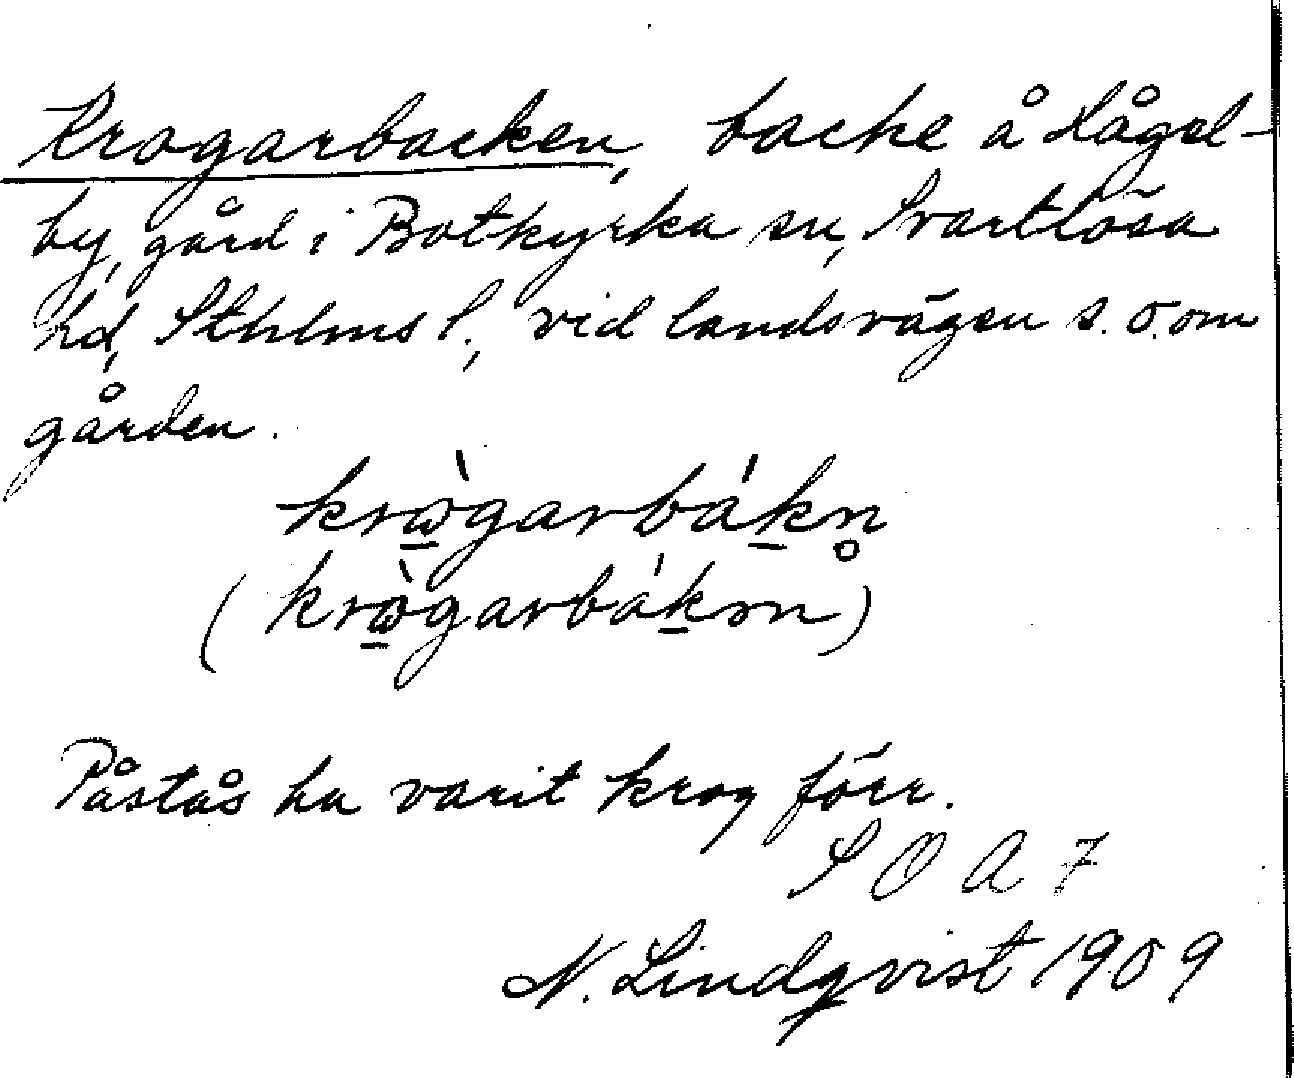 Krogarbacken, backe å Hågel-
by, gård i Botkyrka sn, Svartlösa
hd, Sthlms l., vid landsvägen s. o. om
gården.
krὼgarbákn̥
(krὼgarbákən)
Påstås ha varit krog förr.
S O A 7
N. Lindqvist 1909